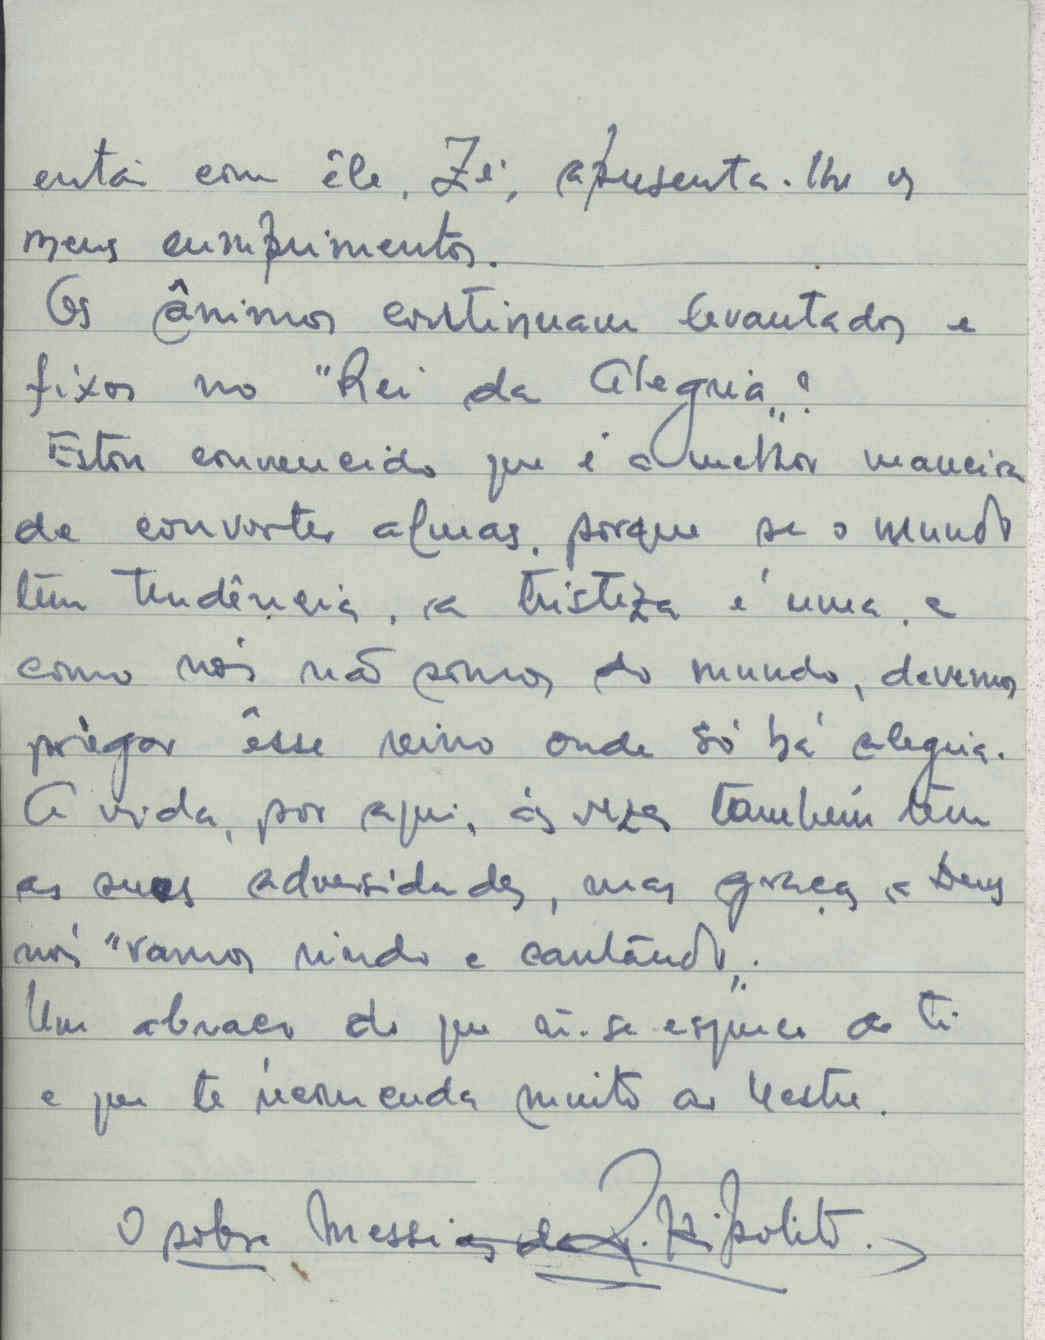 então com êle, Zé, apresenta-lhe os
meus cumprimentos.
Os ânimos continuam levantados e
fixos no "Rei da Alegria"!
Estou convencido que é a melhor maneira
de converter almas, porque se o mundo
têm tendência, a tristeza é uma, e
como nós não somos do mundo, devemos
prègar êsse reino onde só há alegria.
A vida, por aqui, às vezes também têm
as suas adversidades, mas graças a Deus
nós "vamos rindo e cantando".
Um abraço do que ñ-se esquece de ti
e que te recomenda muito ao Mestre.
O pobre Messias de R. Hipolito.